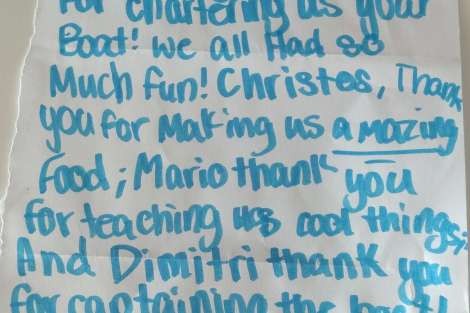 For chartering us your
Boat! we all Had so
Much fun! Christos, Thank
you for Making us amazing
Food; Mario thank you
for teaching us cool things;
And Dimitri thank you
for captaining the boat!